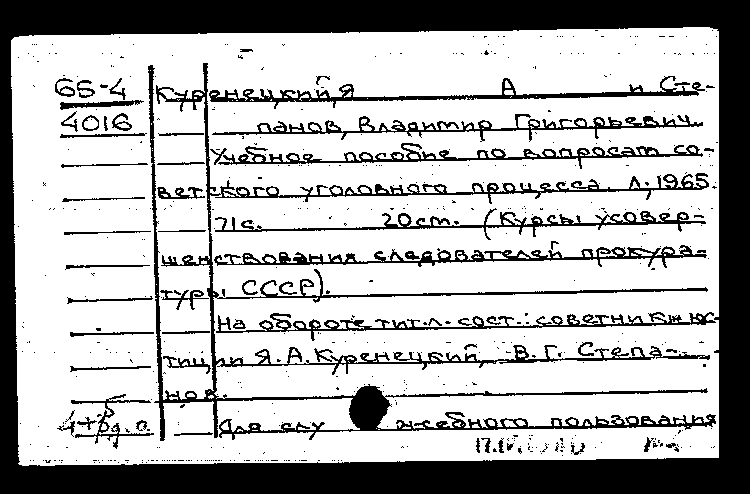 65-4 Куренецкий, Я А и Сте-
4016 панов, Владимир Григорьевич.
Учебное пособие по вопросам со-
ветского уголовного процесса. Л., 1965.
71 с. 20 cm. (Курсы усовер-
шенствования следователей прокура-
туры СССР).
На обороте тит.л. сост.: советники юс-
тиции Я.А.Куренецкий, В.Г. Степа-
нов.
Для служебного пользования